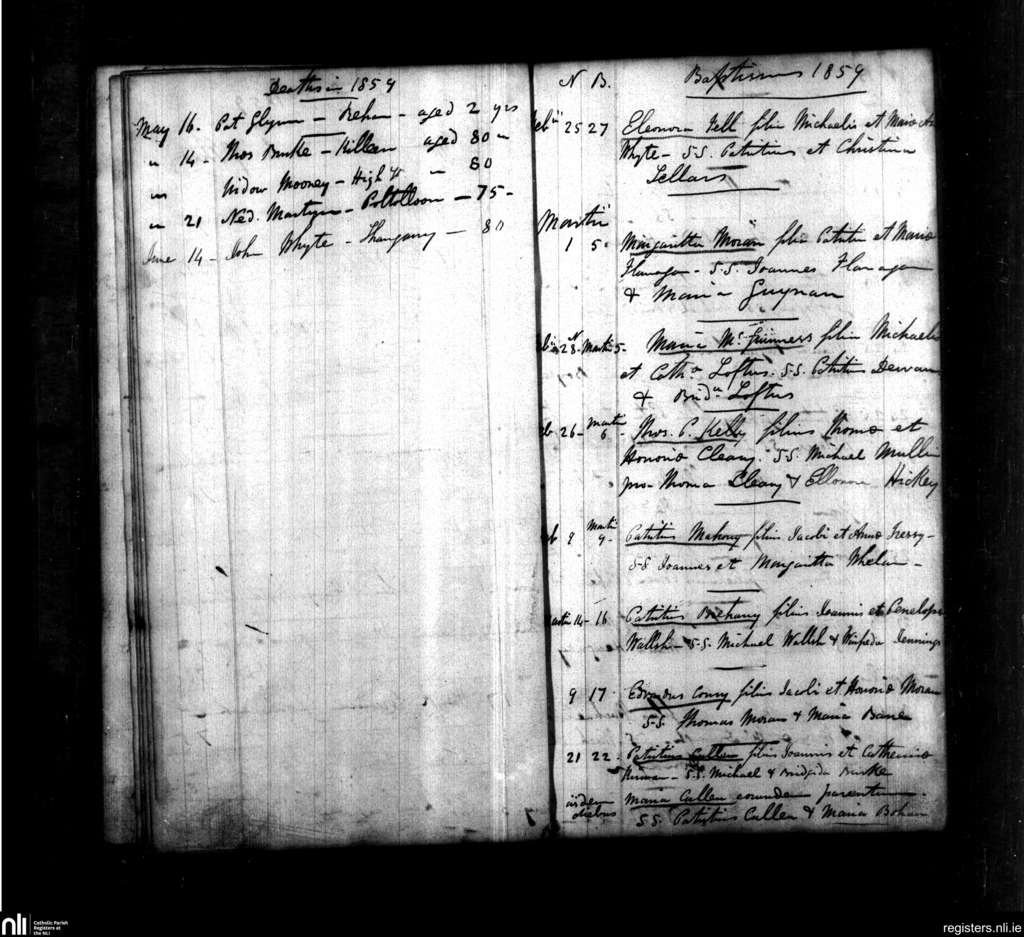 Deaths in 1859
May 16. Pat Glynn - Behan - aged 2 yrs
" 14 - Thos Burke - Killeen aged 80 "
" Widow Mooney - High St " 80
" 21 Ned. Martyn - - 75 -
June 14 - John Whyte - - 80
N B. Baptisms 1859
25 27 Eleonora Fell filia Michaelis et Maria
Whyte - S.S. Patritius et Christina
Sellars
Martii
1 5 Margaritta Moran filia Patritii et Maria
Flanagan - S.S. Joannes Flanagan
& Maria Guynan
N
28 - Martii 5 - Maria McGuinness filia Michaelis
et Cath.a Loftus. S.S. Patritius
& Brid.a Loftus
26 - Martii 6 - Thos. P. Kelly filius Thoma et
Honoria Cleary. S.S. Michael Mullin
pro Thoma Cleary & Ellonora Hickey
Martii 9 - Patritius Mahony filius Jacobi et Anna
S.S Joannes et Margaritta Whelan -
Martii 14 - 16 Patritius filius Joannis et Penelopa
Wallsh - S.S. Michael Wallsh & Winifrida Jennings
9 17 Edvardus Conry filius Jacobi et Honoria Moran
S.S. Thomas Moran & Maria Bane
21 22 - Patritius Cullen filius Joannis et Catherina
- S.S. Michael & Bridgida Burke
iisdem Maria Cullen eorundem parentum.
diebus S.S. Patritius Cullen & Maria Bohan
nli Catholic Parish
Registers at
the NLI
registers.nli.ie